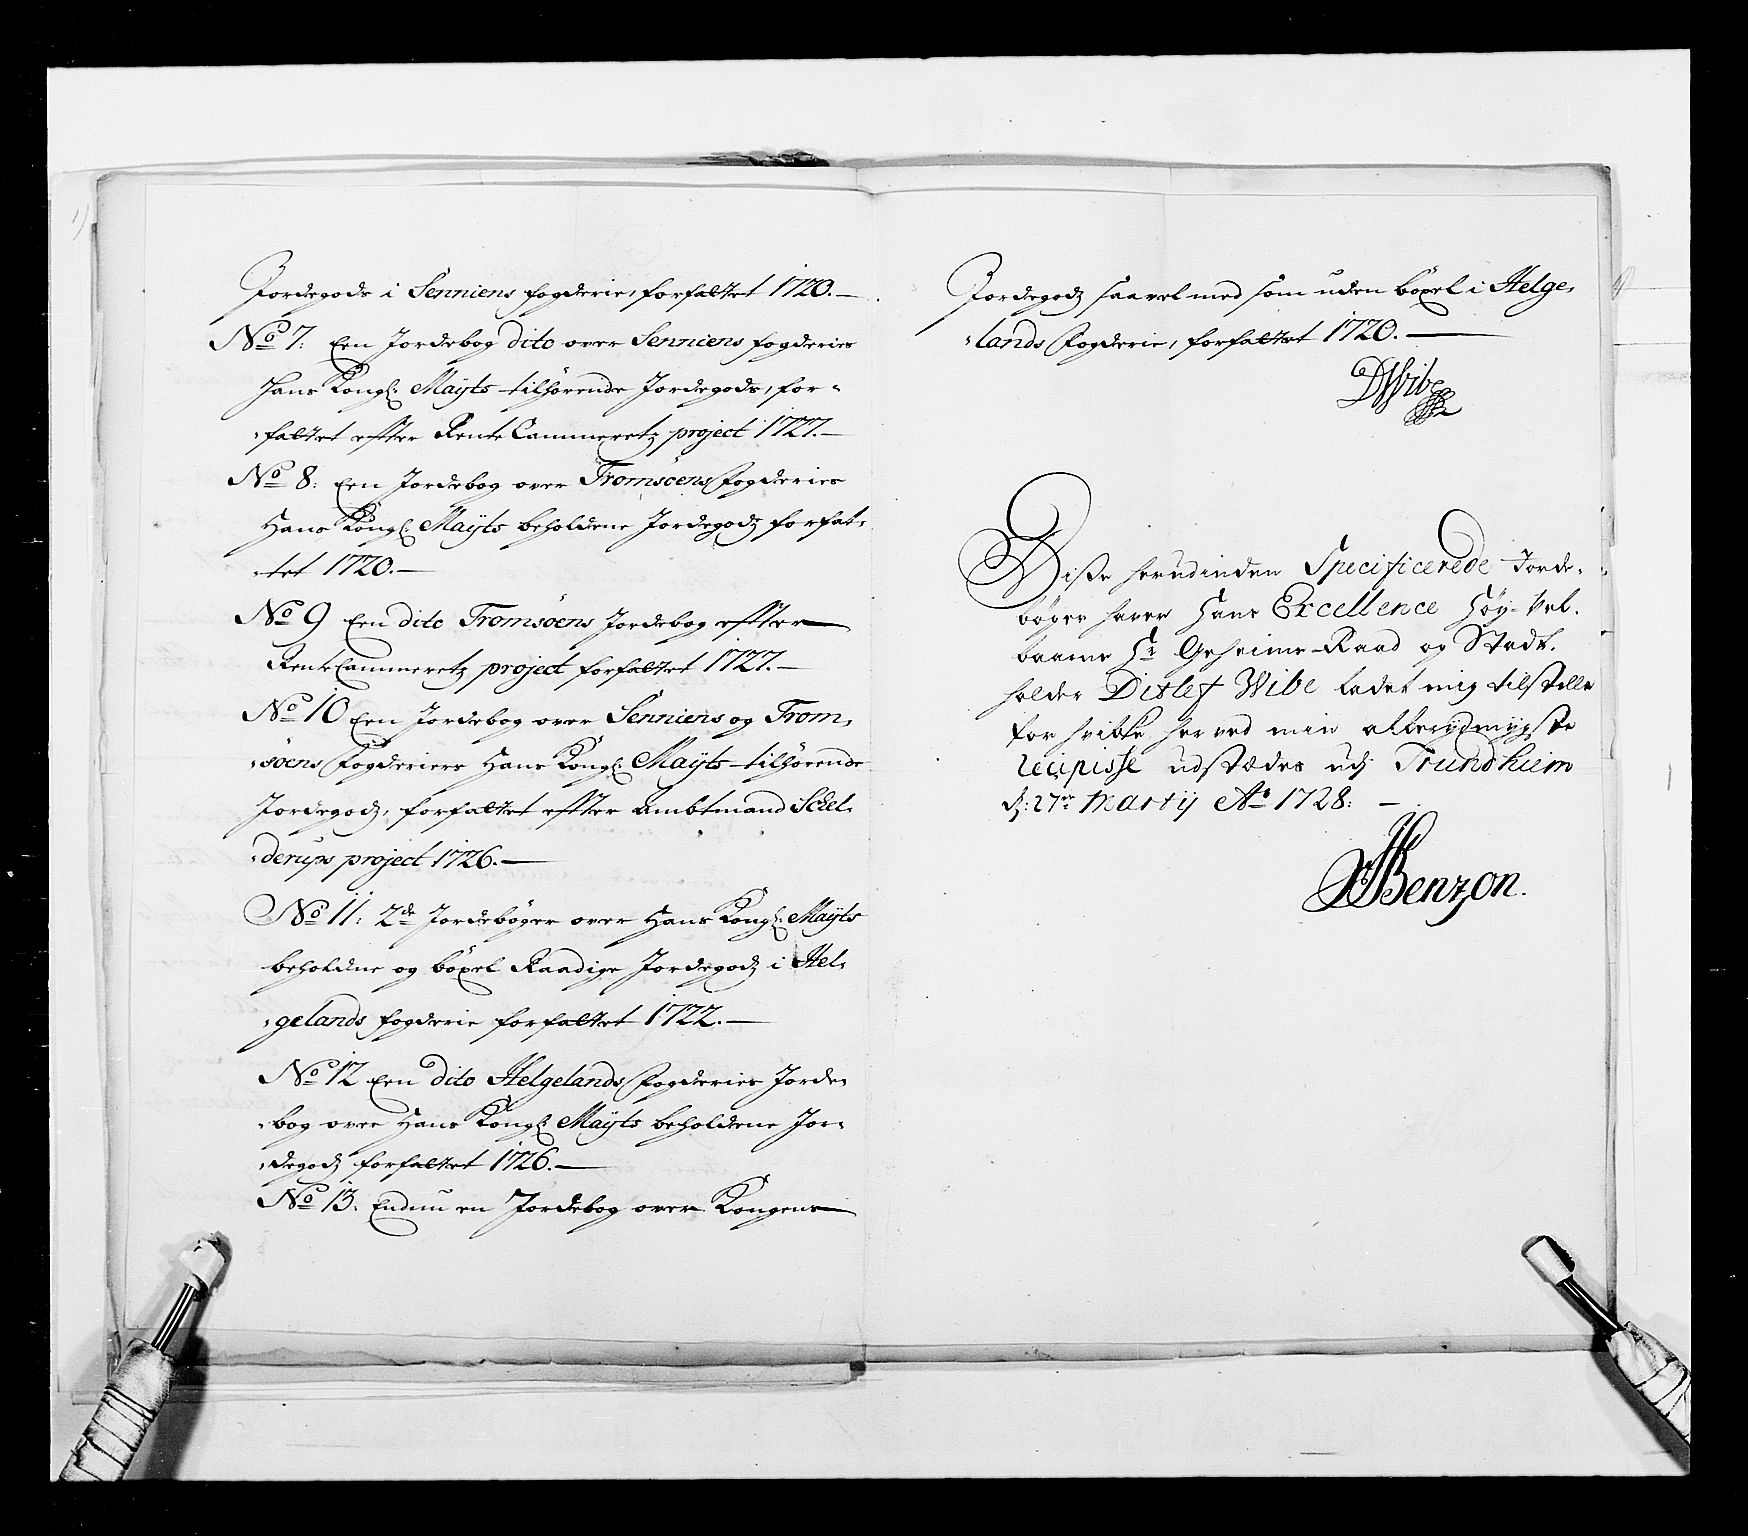 Jordegods i Senniens fogderie, forfattet 1720.—
No 7: Een Jordebog dito over Senniens fogderies
Hans Kongl: Mayts tilhörende Jordegods, for=
=fattet efter Rente Cammeretz project 1727.—
No 8: Een Jordebog over Tromsöens Fogderies
Hans Kongl: Maÿts beholdene Jordegodz forfat=
=tet 1720.—
No 9 Een dito Tromsöens Jordebog effter
Rente Cammeretz project forfattet 1727.—
No 10 Een Jordebog over Senniens og Trom=
=söens Fogderiers Hans Kongl: Maÿts tilhörende
Jordegodz, forfattet effter Ambtmand Schel=
=derups project 1726.—
No 11: 2de Jordebøger over Hans Kongl: Maÿts
beholdne og böxel Raadige Jordegodz i Hel=
=gelands fogderie forfattet 1722.—
No 12 Een dito Helgelands Fogderies Jorde=
=bog over Hans Kongl: Maÿts beholdene Jor=
=degodz forfattet 1726.—
No 13. Endnu en Jordebog over Kongens
Jordegodz saavel med som uden böxel i Helge=
=lands Fogderie, forfattet 1720.—
DWibe
Disse herudinden Specificerede Jorde=
bøger haver Hans Excellence Høy-Vel=
baarne Hr Geheime-Raad og Stadt=
holder Ditlef Wibe ladet mig tilstille
for hvilke herved min allerydmygste
recipisse udstædes udj Trundhiem
d: 27de Martij Ao 1728: —
Benzon.